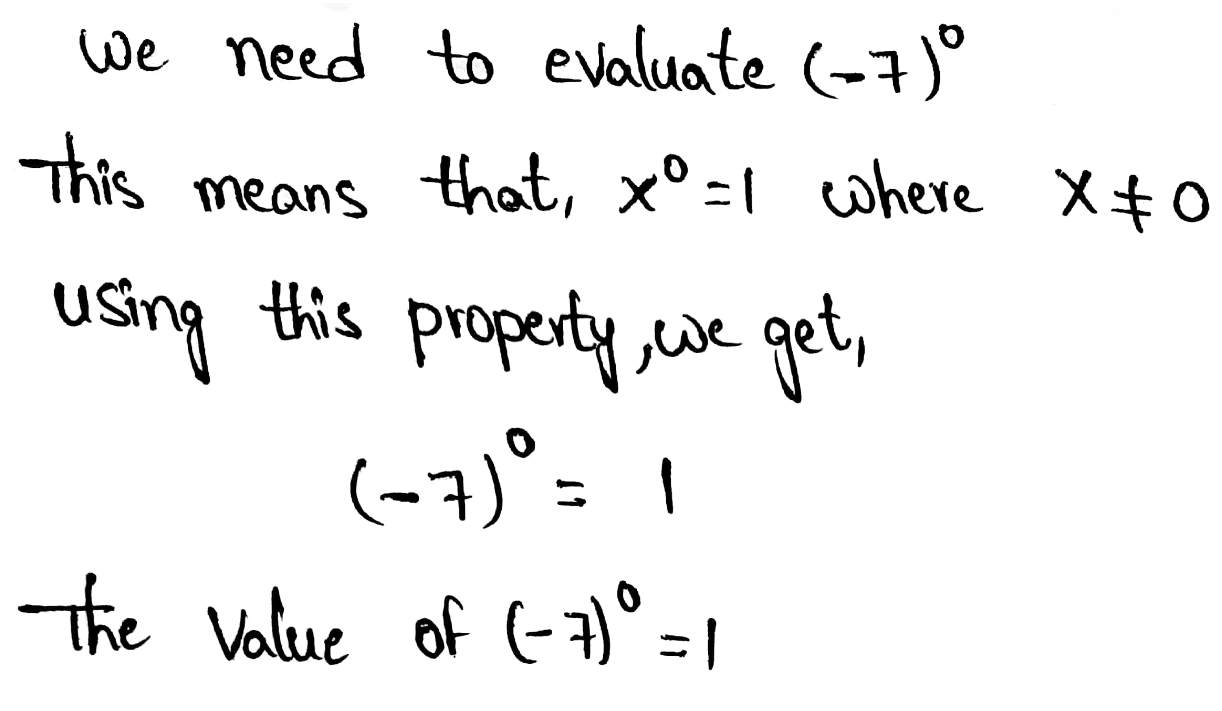 We need to evaluate (-7)⁰
This means that, x⁰ = 1 where x ≠ 0
using this property, we get,
(-7)⁰ = 1
The value of (-7)⁰ = 1